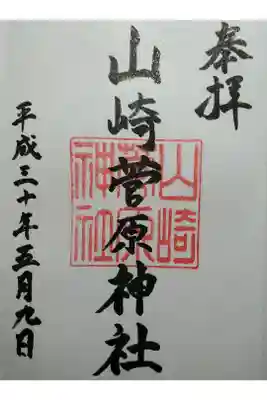 奉拝
山崎菅原神社
山崎菅原神社
平成三十年五月九日